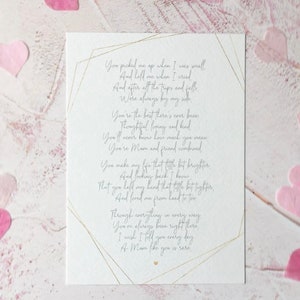 You picked me up when I was small,
And held me when I cried
And after all the trips and falls
Were always by my side

You're the best there's ever been
Thoughtful, loving and kind
You'll never know how much you mean
You're Mum and friend combined

You make my life that little bit brighter,
And looking back I know
That you held my hand that little bit tighter,
And loved me from head to toe

Through everything in every way
You've always been right there
I wish I told you every day
A Mum like you is rare